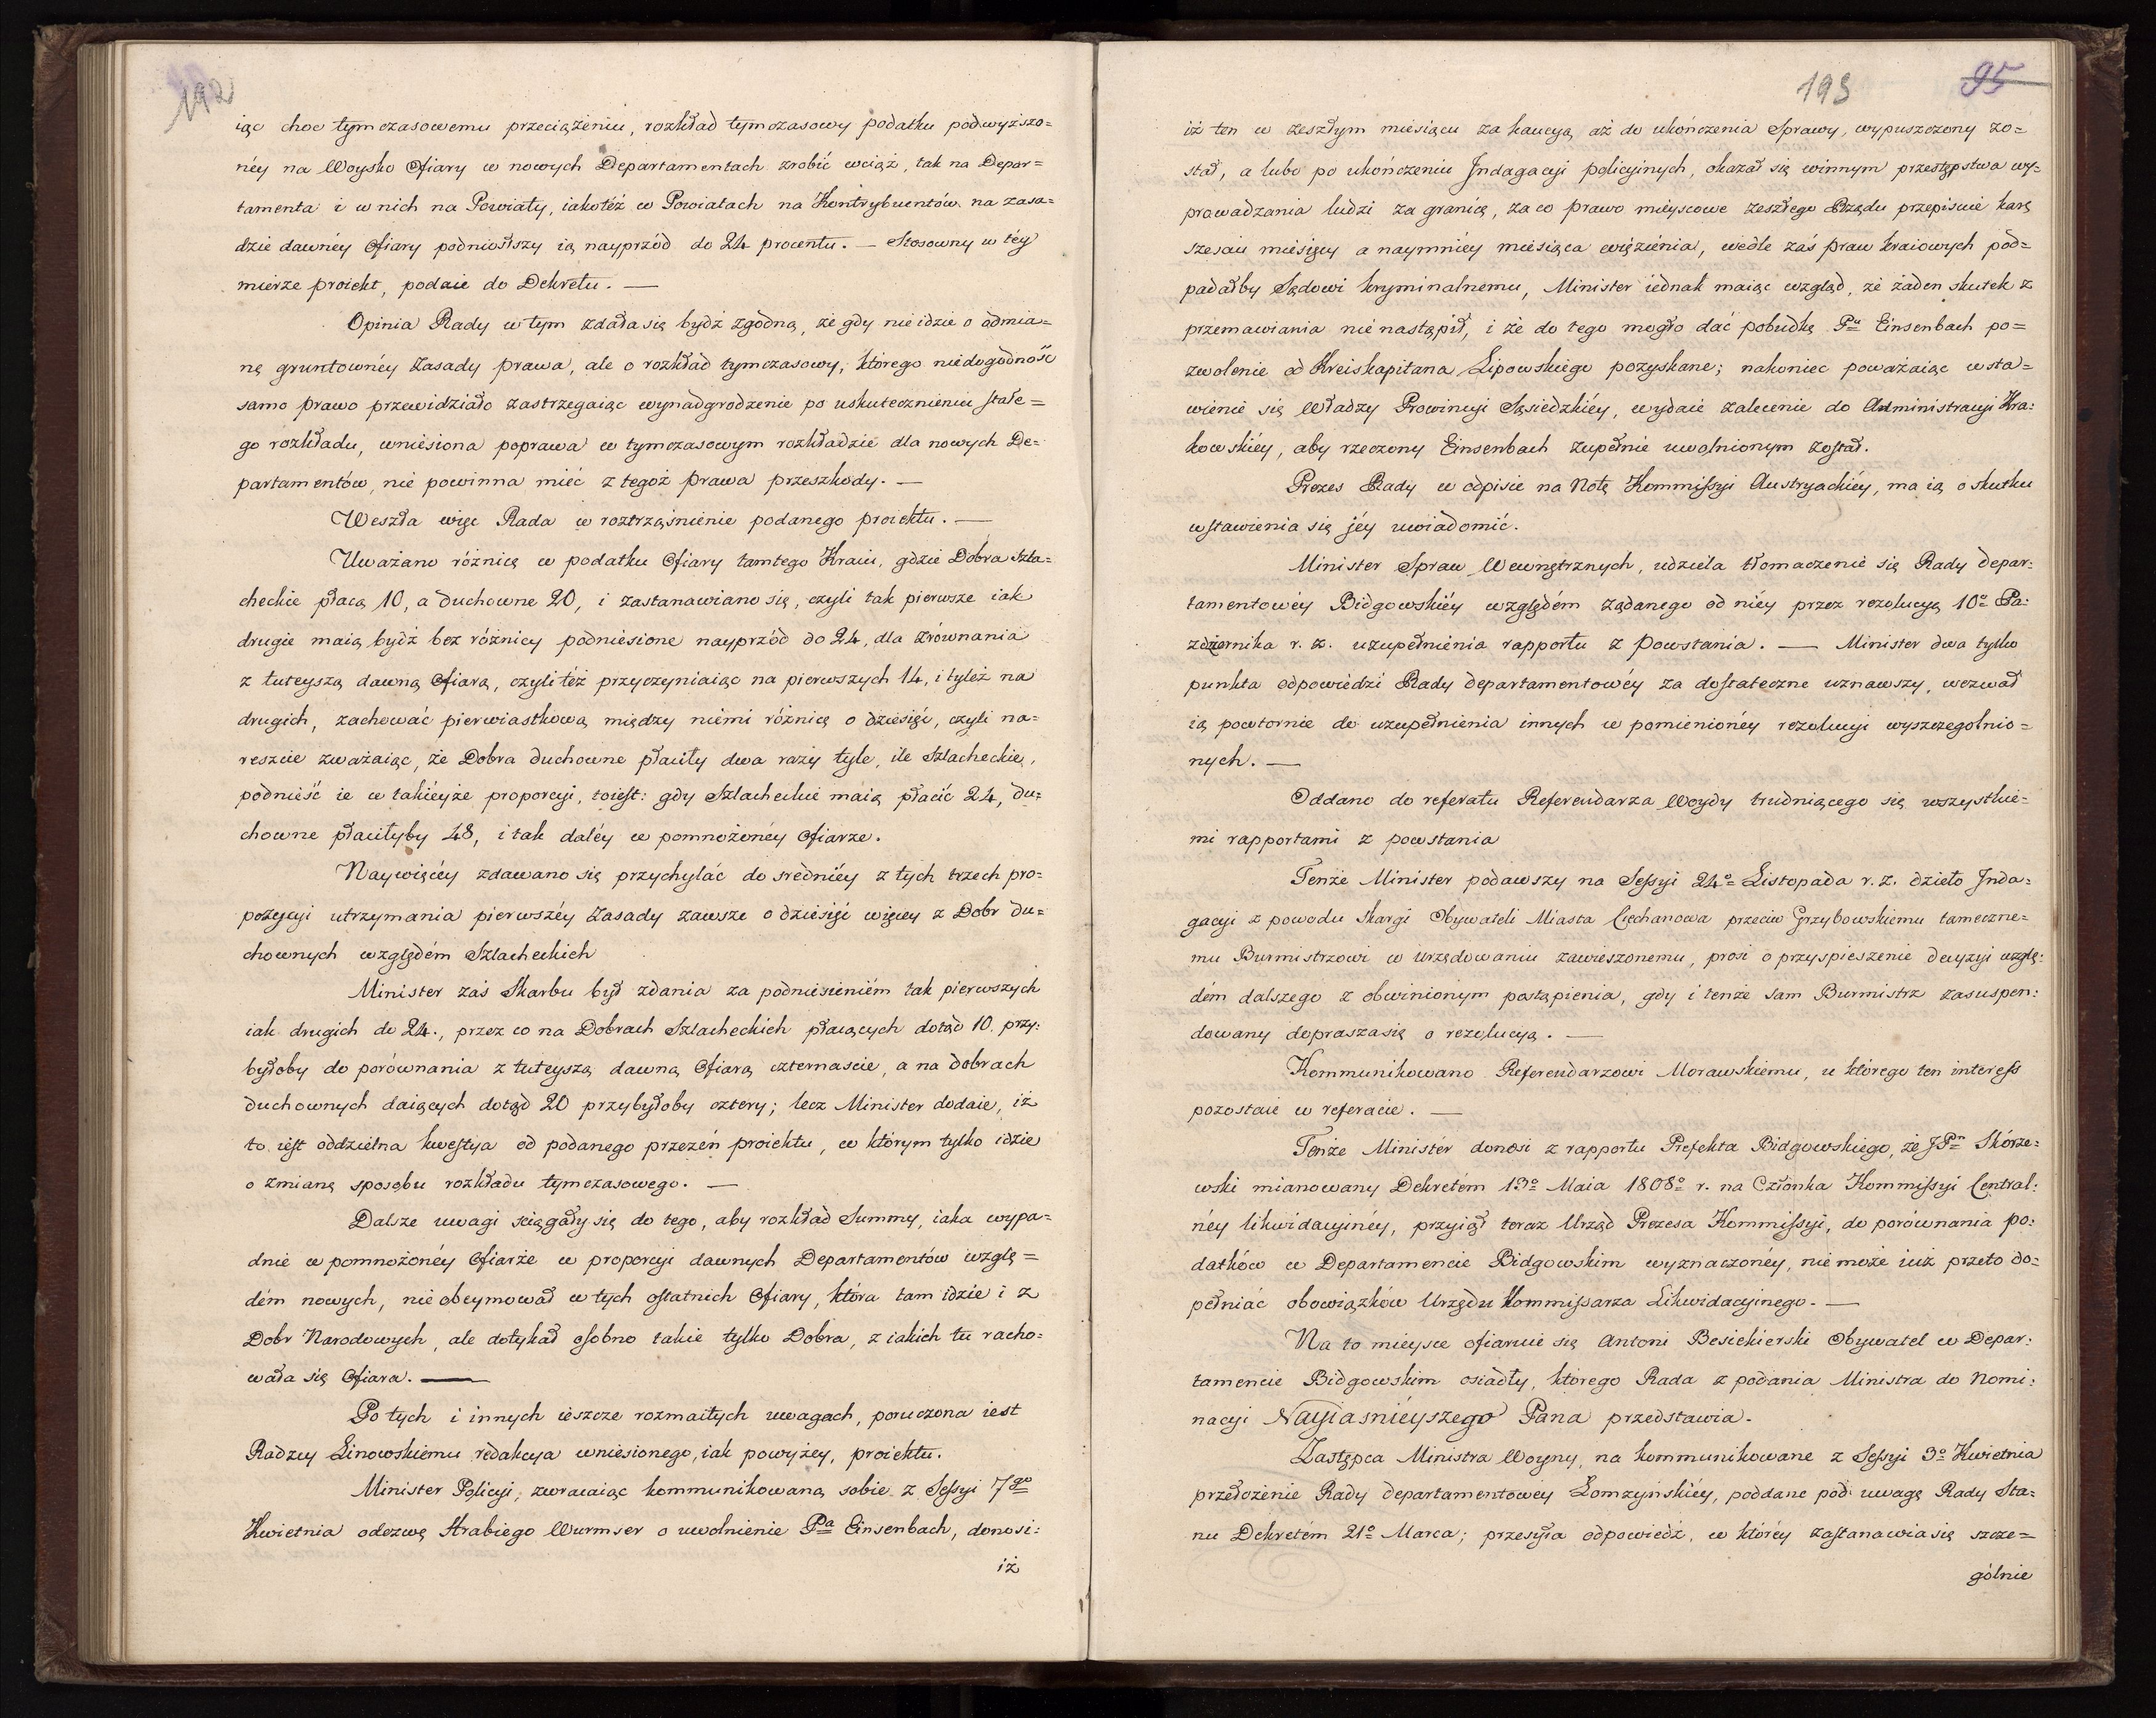 192
iąc choc tymczasowemu przeciążeniu, rozkład tymczasowy podatku podwyższo=
néy na Woysko Ofiary w nowych Departamentach zrobić wciąż, tak na Depar=
tamenta i w nich na Powiaty, iakotéż w Powiatach na Kontrybuentów na zasa=
dzie dawnéy Ofiary podniosłszy ią nayprzód do 24 procentu. — Stosowny w téy
mierze proiekt, podaie do Dekretu. —
Opinia Rady w tym zdała się bydź zgodną, że gdy nie idzie o odmia=
nę gruntownéy Zasady prawa, ale o rozkład tymczasowy, którego niedogodność
samo prawo przewidziało zastrzegaiąc wynadgrodzenie po uskutecznieniu stałe=
go rozkładu, wniesiona poprawa w tymczasowym rozkładzie dla nowych De=
partamentów, nie powinna mieć z tegoż prawa przeszkody. —
Weszła więc Rada w roztrząśnienie podanego proiektu. —
Uważano różnicę w podatku Ofiary tamtego Kraiu, gdzie Dobra Szla=
checkie płacą 10, a duchowne 20, i zastanawiano się, czyli tak pierwsze iak
drugie maią bydź bez różnicy podniesione nayprzód do 24, dla zrównania
z tuteyszą dawną Ofiarą, czyli téż przyczyniaiąc na pierwszych 14, i tyleż na
drugich, zachować pierwiastkową między niémi różnicę o dziesięć, czyli na=
reszcie zważaiąc, że Dobra duchowne płaciły dwa razy tyle, ile Szlacheckie,
podnieść ie w takieyże proporcyi, toiest: gdy Szlacheckie maią płacić 24, du=
chowne płaciłyby 48, i tak daléy w pomnożonéy Ofiarze.
Naywięcéy zdawano się przychylać do średniéy z tych trzech pro=
pozycyi utrzymania pierwszéy Zasady zawsze o dziesięć więcey z Dobr du=
chownych względém Szlacheckich
Minister zaś Skarbu był zdania za podniesieniém tak pierwszych
iak drugich do 24., przez co na Dobrach Szlacheckich płacących dotąd 10. przy:
byłoby do porównania z tuteyszą dawną Ofiarą czternascie, a na dobrach
duchownych daiących dotąd 20 przybyłoby cztery; lecz Minister dodaie, iż
to iest oddzielna kwestya od podanego przezeń proiektu, w którym tylko idzie
o zmianę sposobu rozkładu tymczasowego. —
Dalsze uwagi sciągały się do tego, aby rozkład Summy, iaka wypa=
dnie w pomnożonéy Ofiarze w proporcyi dawnych Departamentów wzglę=
dém nowych, nie obeymował w tych ostatnich Ofiary, która tam idzie i z
Dobr Narodowych, ale dotykał osobno takie tylko Dobra, z iakich tu racho=
wała się Ofiara. —
Po tych i innych ieszcze rozmaitych uwagach, poruczona iest
Radzcy Linowskiemu redakcya wniesionego, iak powyżey, proiektu.
Minister Policyi, zwracaiąc kommunikowaną sobie z Sessyi 7go
Kwietnia odezwę Hrabiego Wurmser o uwolnienie Pa Einsenbach, donosi:
iż
193 95
iż ten w zeszłym miesiącu za kaucyą aż do ukończenia Sprawy, wypuszczony zo=
stał, a lubo po ukończeniu Indagacyi policyinych, okazał się winnym przestępstwa wy=
prowadzania ludzi za granicę, za co prawo mieyscowe zeszłego Rządu przepisuie karę
szesciu miesięcy a naymniéy miesiąca więzienia, wedle zaś praw kraiowych pod=
padałby Sądowi kryminalnemu, Minister iednak maiąc wzgląd, że żaden skutek z
przemawiania nie nastąpił, i że do tego mogło dać pobudkę Pu Einsenbach po=
zwolenie od Kreiskapitana Lipowskiego pozyskane; nakoniec poważaiąc wsta=
wienie się Władzy Prowincyi Sąsiedzkiéy, wydaie zalecenie do Administracyi Kra:
kowskiéy, aby rzeczony Einsenbach zupełnie uwolnionym został.
Prezes Rady w odpisie na Notę Kommissyi Austryackiéy, ma ią o skutku
wstawienia się jéy uwiadomić.
Minister Spraw Wewnętrznych, udziela tłomaczenie się Rady depar:
tamentowéy Bidgowskiéy względém żądanego od niéy przez rezolucyą 10o Pa:
zdziernika r. z. uzupełnienia rapportu z Powstania. — Minister dwa tylko
punkta odpowiedzi Rady departamentowéy za dostateczne uznawszy, wezwał
ią powtornie do uzupełnienia innych w pomienionéy rezolucyi wyszczegolnio=
nych. —
Oddano do referatu Referendarza Woydy trudniącego się wszystkie=
mi rapportami z powstania
Tenże Minister podawszy na Sessyi 24o Listopada r. z. dzieło Inda=
gacyi z powodu Skargi Obywateli Miasta Ciechanowa przeciw Grzybowskiemu tameczne=
mu Burmistrzowi w Urzędowaniu zawieszonemu, prosi o przyspieszenie decyzyi wzglę:
dém dalszego z obwinionym postąpienia, gdy i tenże sam Burmistrz zasuspen:
dowany doprasza się o rezolucyą. —
Kommunikowano Referendarzowi Morawskiemu, u którego ten interess
pozostaie w referacie. —
Tenże Ministér donosi z rapportu Prefekta Bidgowskiego, że JPn Skórze=
wski mianowany Dekretém 13o Maia 1808o r. na Członka Kommissyi Central:
néy likwidacyinéy, przyiął teraz Urząd Prezesa Kommissyi, do porównania po:
datków w Departamencie Bidgowskim wyznaczonéy, nie może iuż przeto do=
pełniać obowiązków Urzędu Kommissarza Likwidacyinego. —
Na to mieysce ofiaruie się Antoni Besiekierski Obywatel w Depar:
tamencie Bidgowskim osiadły, którego Rada z podania Ministra do Nomi:
nacyi Nayiasnieyszego Pana przedstawia.
Zastępca Ministra Woyny, na kommunikowane z Sessyi 3o Kwietnia
przełożenie Rady departamentowey Łomżyńskiéy, poddane pod uwagę Rady Sta=
nu Dekretém 21o Marca; przesyła odpowiedź, w któréy zastanawia się szcze=
gólnie